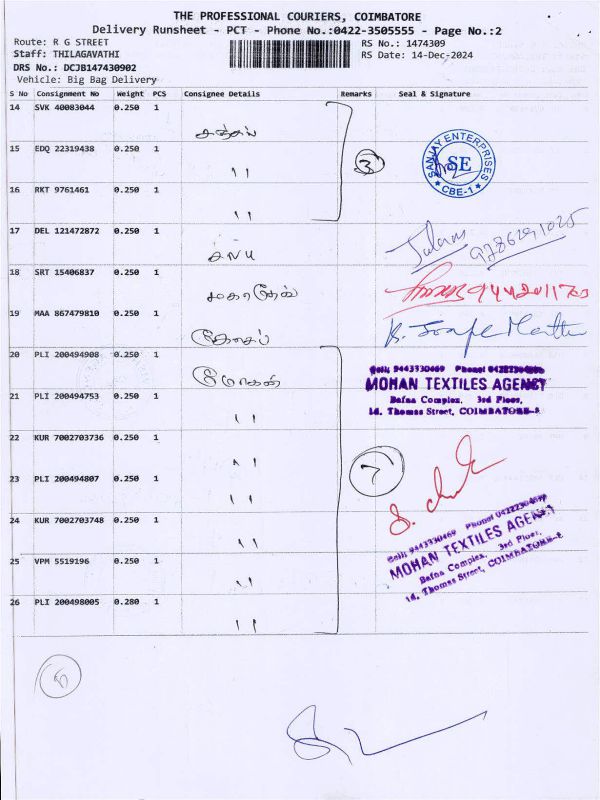 THE PROFESSIONAL COURIERS, COIMBATORE
Delivery Runsheet - PCT - Phone No.:0422-3505555 - Page No.:2
Route: R G STREET
RS No.: 1474309
Staff: THILAGAVATHI
RS Date: 14-Dec-2024
DRS No.: DCJB147430902
Vehicle: Big Bag Delivery
S No Consignment No Weight PCS Consignee Details Remarks Seal & Signature
14 SVK 40083044 0.250 1
15 EDQ 22319438 0.250 1
" 3
SANJAY ENTERPRISES
SE
* CBE-1 *
16 RKT 9761461 0.250 1
"
17 DEL 121472872 0.250 1
9786291025
18 SRT 15406837 0.250 1
19 MAA 867479810 0.250 1
20 PLI 200494908 0.250 1
மோகன்
Cell: 9443330469
MOHAN TEXTILES AGENCY
Bafna Complex, 3rd Floor,
14, Thomas Street, COIMBATORE-1
21 PLI 200494753 0.250 1
"
22 KUR 7002703736 0.250 1
"
7
23 PLI 200494807 0.250 1
"
24 KUR 7002703748 0.250 1
"
Cell: 9443330469
MOHAN TEXTILES AGENCY
Bafna Complex, 3rd Floor,
14, Thomas Street, COIMBATORE-1
25 VPM 5519196 0.250 1
"
26 PLI 200498005 0.280 1
"